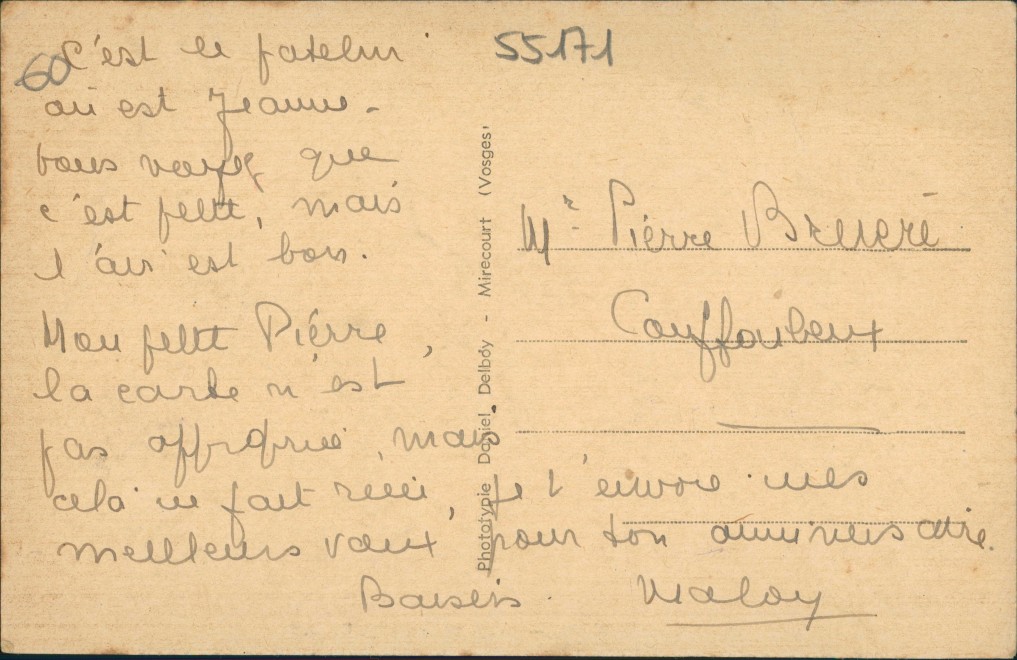 60
C'est le patelin
où est Jeanne -
vous voyez que
c'est petit, mais
l'air est bon.
Mon petit Pierre,
la carte n'est
pas appropriée, mais
cela ne fait rien, je t'envoie mes
meilleurs vœux pour ton anniversaire.
Baisers. Maloy
Phototypie Daniel Delboy - Mirecourt (Vosges)
55171
Mr Pierre